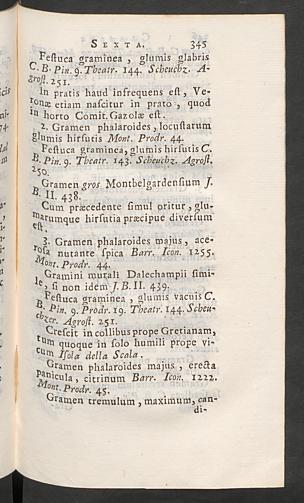 SEXTA. 345
Festuca graminea, glumis glabris
C. B. Pin. 9. Theatr. 144. Scheuchz. A-
grost. 251.
In pratis haud infrequens est, Ve-
ronæ etiam nascitur in prato, quod
in horto Comit. Gazolæ est.
2. Gramen phalaroides, locustarum
glumis hirsutis Mont. Prodr. 44.
Festuca graminea, glumis hirsutis C.
B. Pin. 9. Theatr. 143. Scheuchz. Agrost.
250.
Gramen gros Montbelgardensium J.
B. II. 438.
Cum præcedente simul oritur, glu-
marumque hirsutia præcipue diversum
est.
3. Gramen phalaroides majus, ace-
rosa nutante spica Barr. Icon. 1255.
Mont. Prodr. 44.
Gramini murali Dalechampii simi-
le, si non idem J. B. II. 439.
Festuca graminea, glumis vacuis C.
B. Pin. 9. Prodr. 19. Theatr. 144. Scheu-
chzer. Agrost. 251.
Crescit in collibus prope Gretianam,
tum quoque in solo humili prope vi-
cum Isola della Scala.
Gramen phalaroides majus, erecta
panicula, citrinum Barr. Icon. 1222.
Mont. Prodr. 45.
Gramen tremulum, maximum, can-
di-